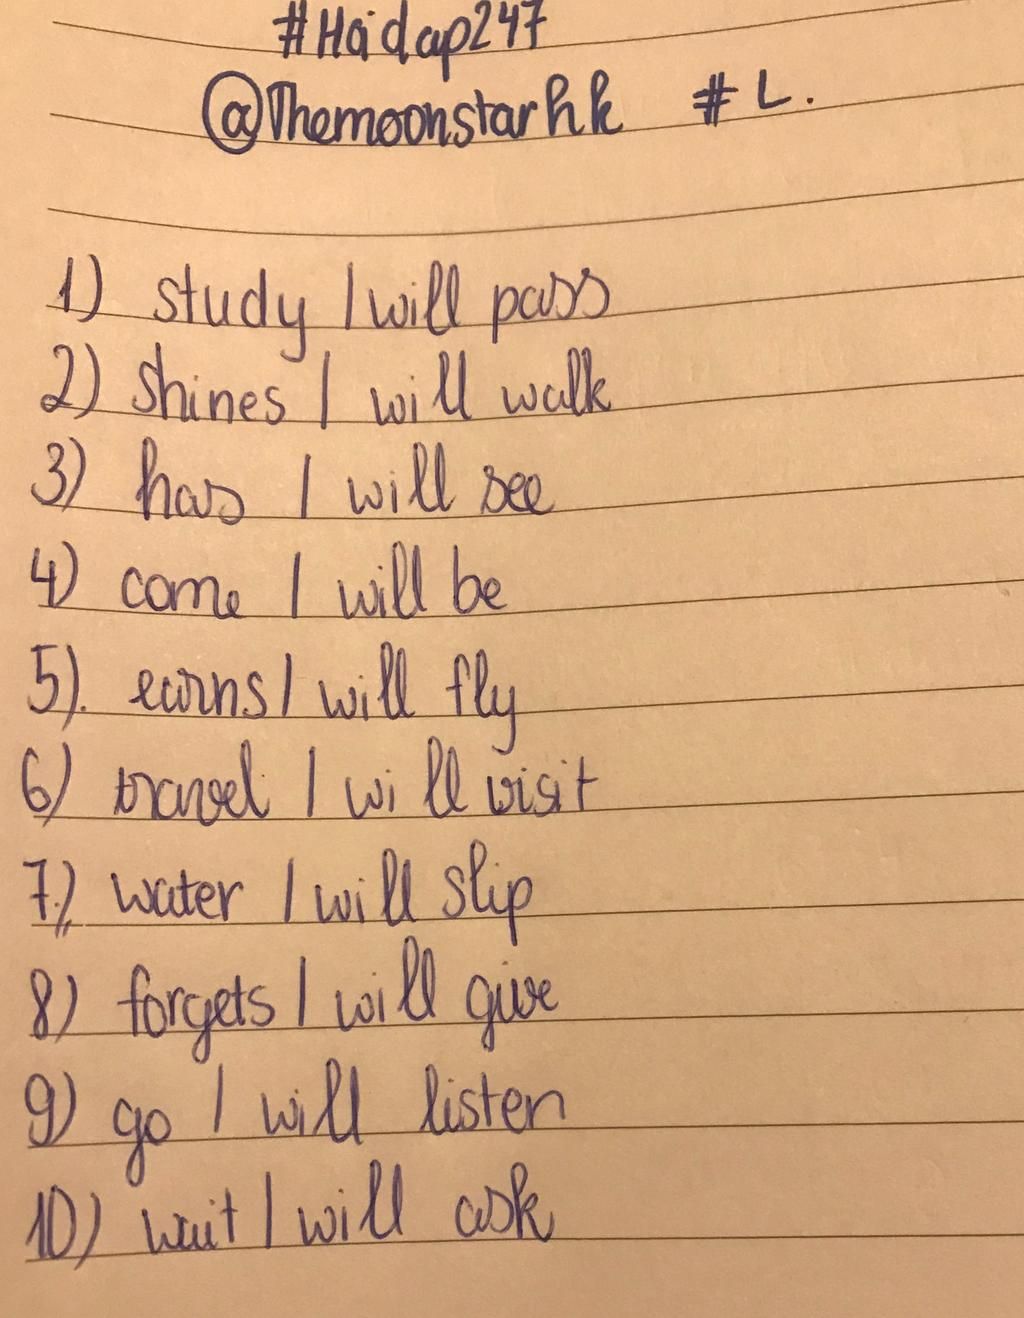 #Hoidap247
@Themoonstarhk # L.
1) study / will pass
2) shines / will walk
3) has / will see
4) come / will be
5). earns / will fly
6) travel / will visit
7.) water / will slip
8) forgets / will give
9) go / will listen
10) wait / will ask